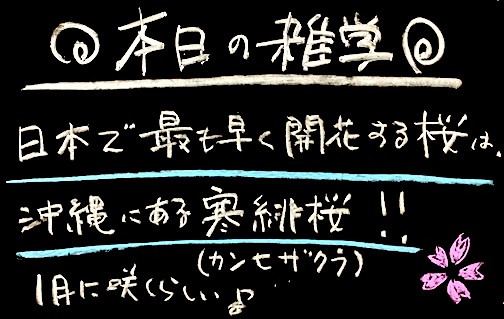 本日の雑学
日本で最も早く開花する桜は、
沖縄にある寒緋桜!!
(カンヒザクラ)
1月に咲くらしい♪